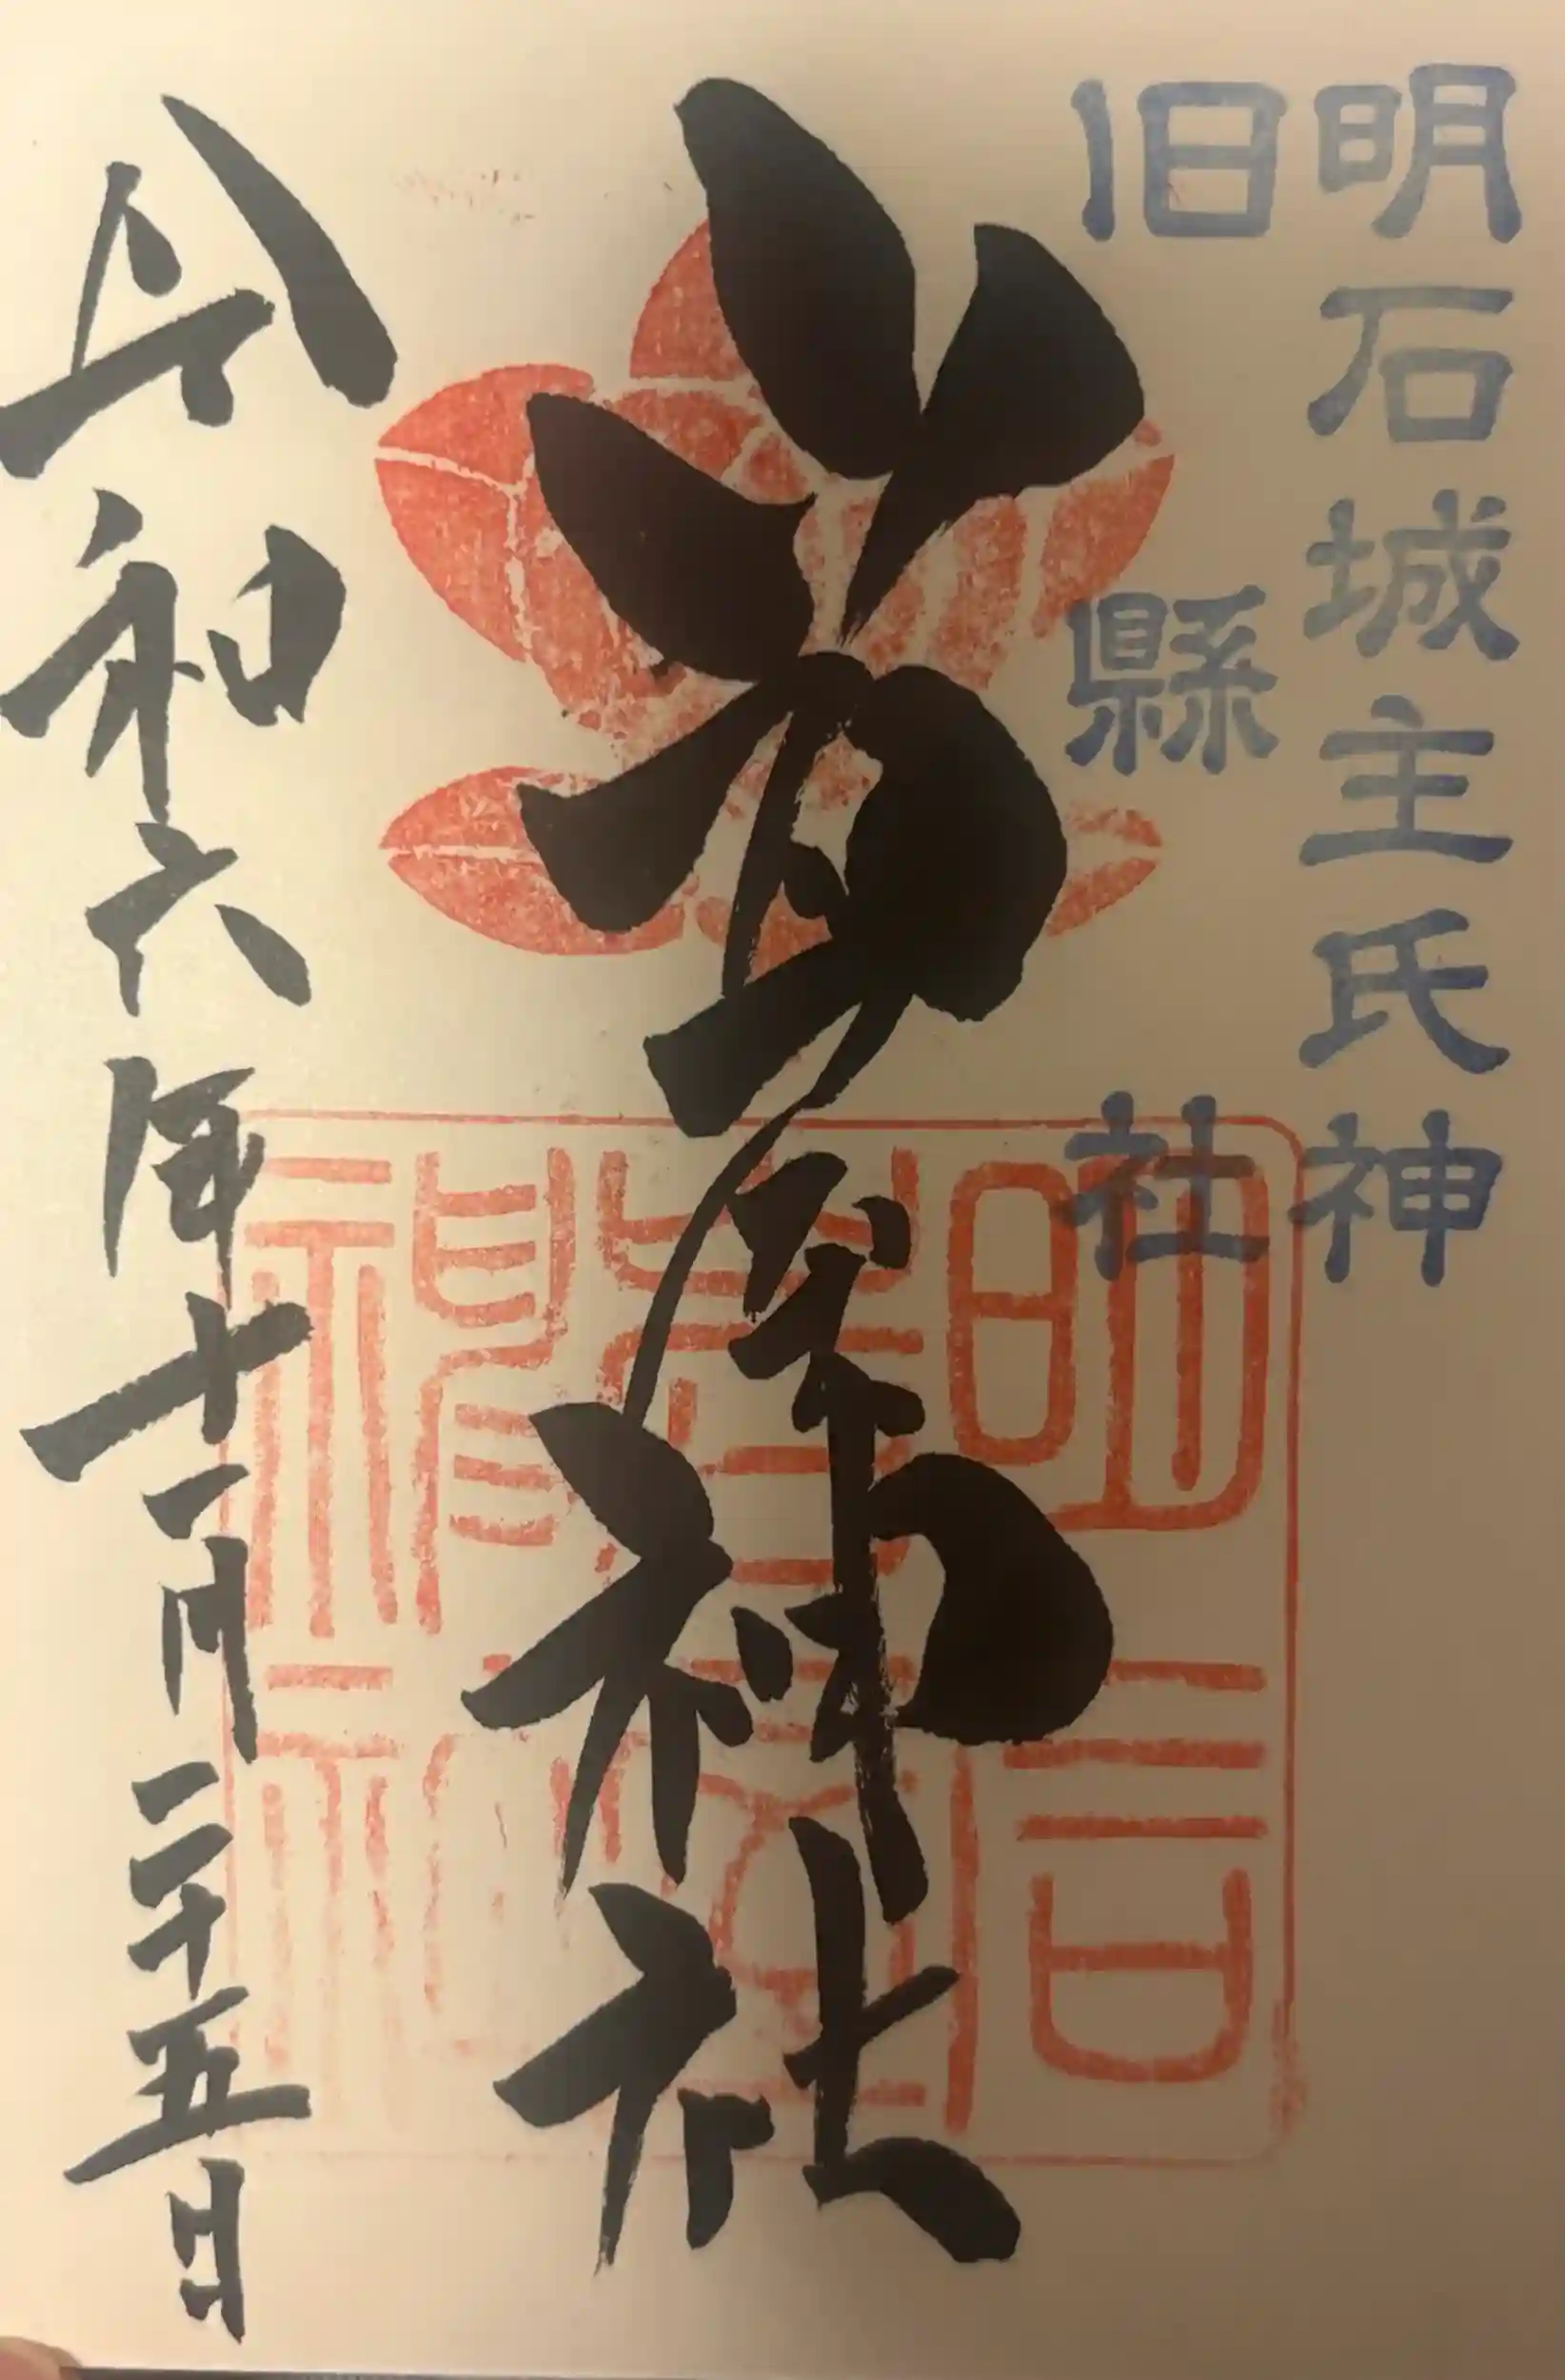 明石城主氏神
旧縣社
岩屋神社
明石
岩屋
神社
令和六年十一月二十五日